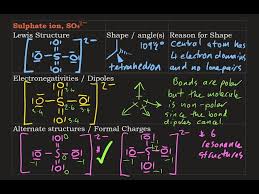 Sulphate ion, SO₄²⁻
Lewis Structure
Shape / angle(s)
Reason for Shape
109½°
tetrahedron
central atom has
4 electron domains
and no lone pairs
2-
Electronegativities / Dipoles
Bonds are polar
but the molecule
is non-polar
since the bond
dipoles cancel.
2-
Alternate structures / Formal Charges
2-
2-
* 6
resonance
structures